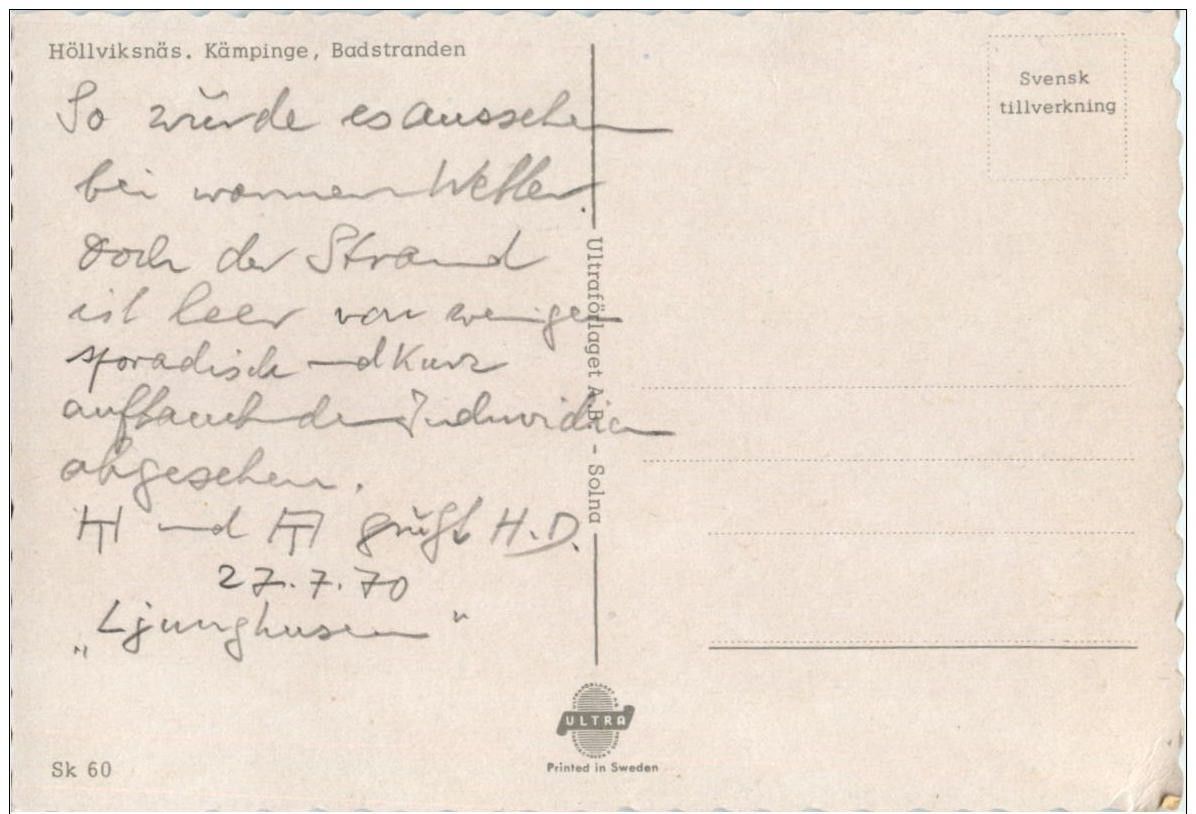 Höllviksnäs. Kämpinge, Badstranden
So würde es aussehen
bei warmem Wetter.
Doch der Strand
ist leer von wenigen
sporadisch und kurz
auftauchenden Individuen
abgesehen.
und grüßt H.D.
27.7.70
„Ljunghusen"
Sk 60
Ultraförlaget A.B. - Solna
ULTRA
Printed in Sweden
Svensk
tillverkning